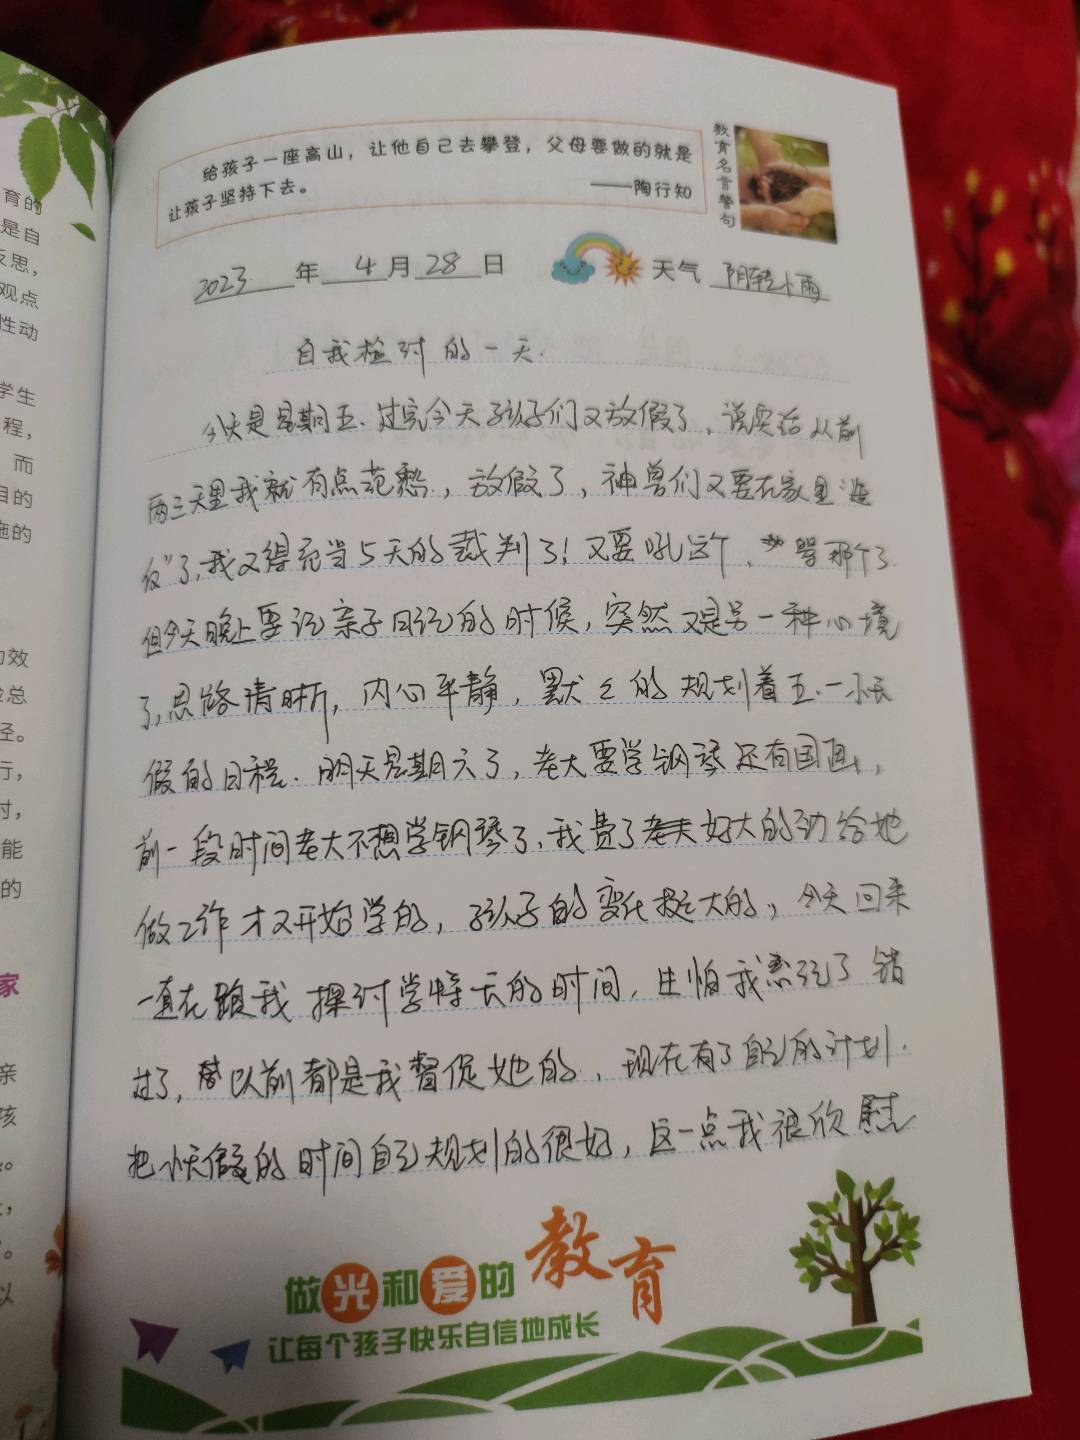 育的
是自
反思，
观点
性动
学生
程，
而
目的
施的
效
总
径。
行，
时，
能
的
家
亲
孩
。
，
。
以
给孩子一座高山，让他自己去攀登，父母要做的就是
让孩子坚持下去。
——陶行知
教育名言警句
2023年4月28日 天气 阴转小雨
自我检讨的一天.
今天是星期五.过完今天孩子们又放假了，说实话从前
两三天里我就有点范愁，放假了，神兽们又要在家里"造
反"了,我又得充当5天的裁判了!又要吼这个，骂那个了
但今天晚上要记亲子日记的时候，突然又是另一种心境
了,思路清晰，内心平静，默々的规划着五.一小长
假的日程.明天星期六了，老大要学钢琴还有国画，
前一段时间老大不想学钢琴了，我费了好大的劲给她
做工作才又开始学的，孩子的变化挺大的，今天回来
一直在跟我探讨学特长的时间，生怕我忘记了错
过了，以前都是我督促她的，现在有了自己的计划.
把小长假的时间自己规划的很好，这一点我很欣慰
做光和爱的教育
让每个孩子快乐自信地成长